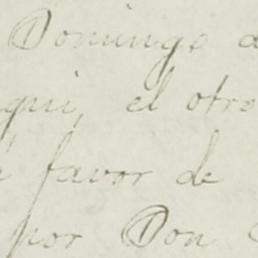 Domingo a
qui, el otro
a favor de
por Don